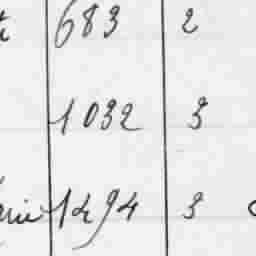 683 2
1032 3
1294 3